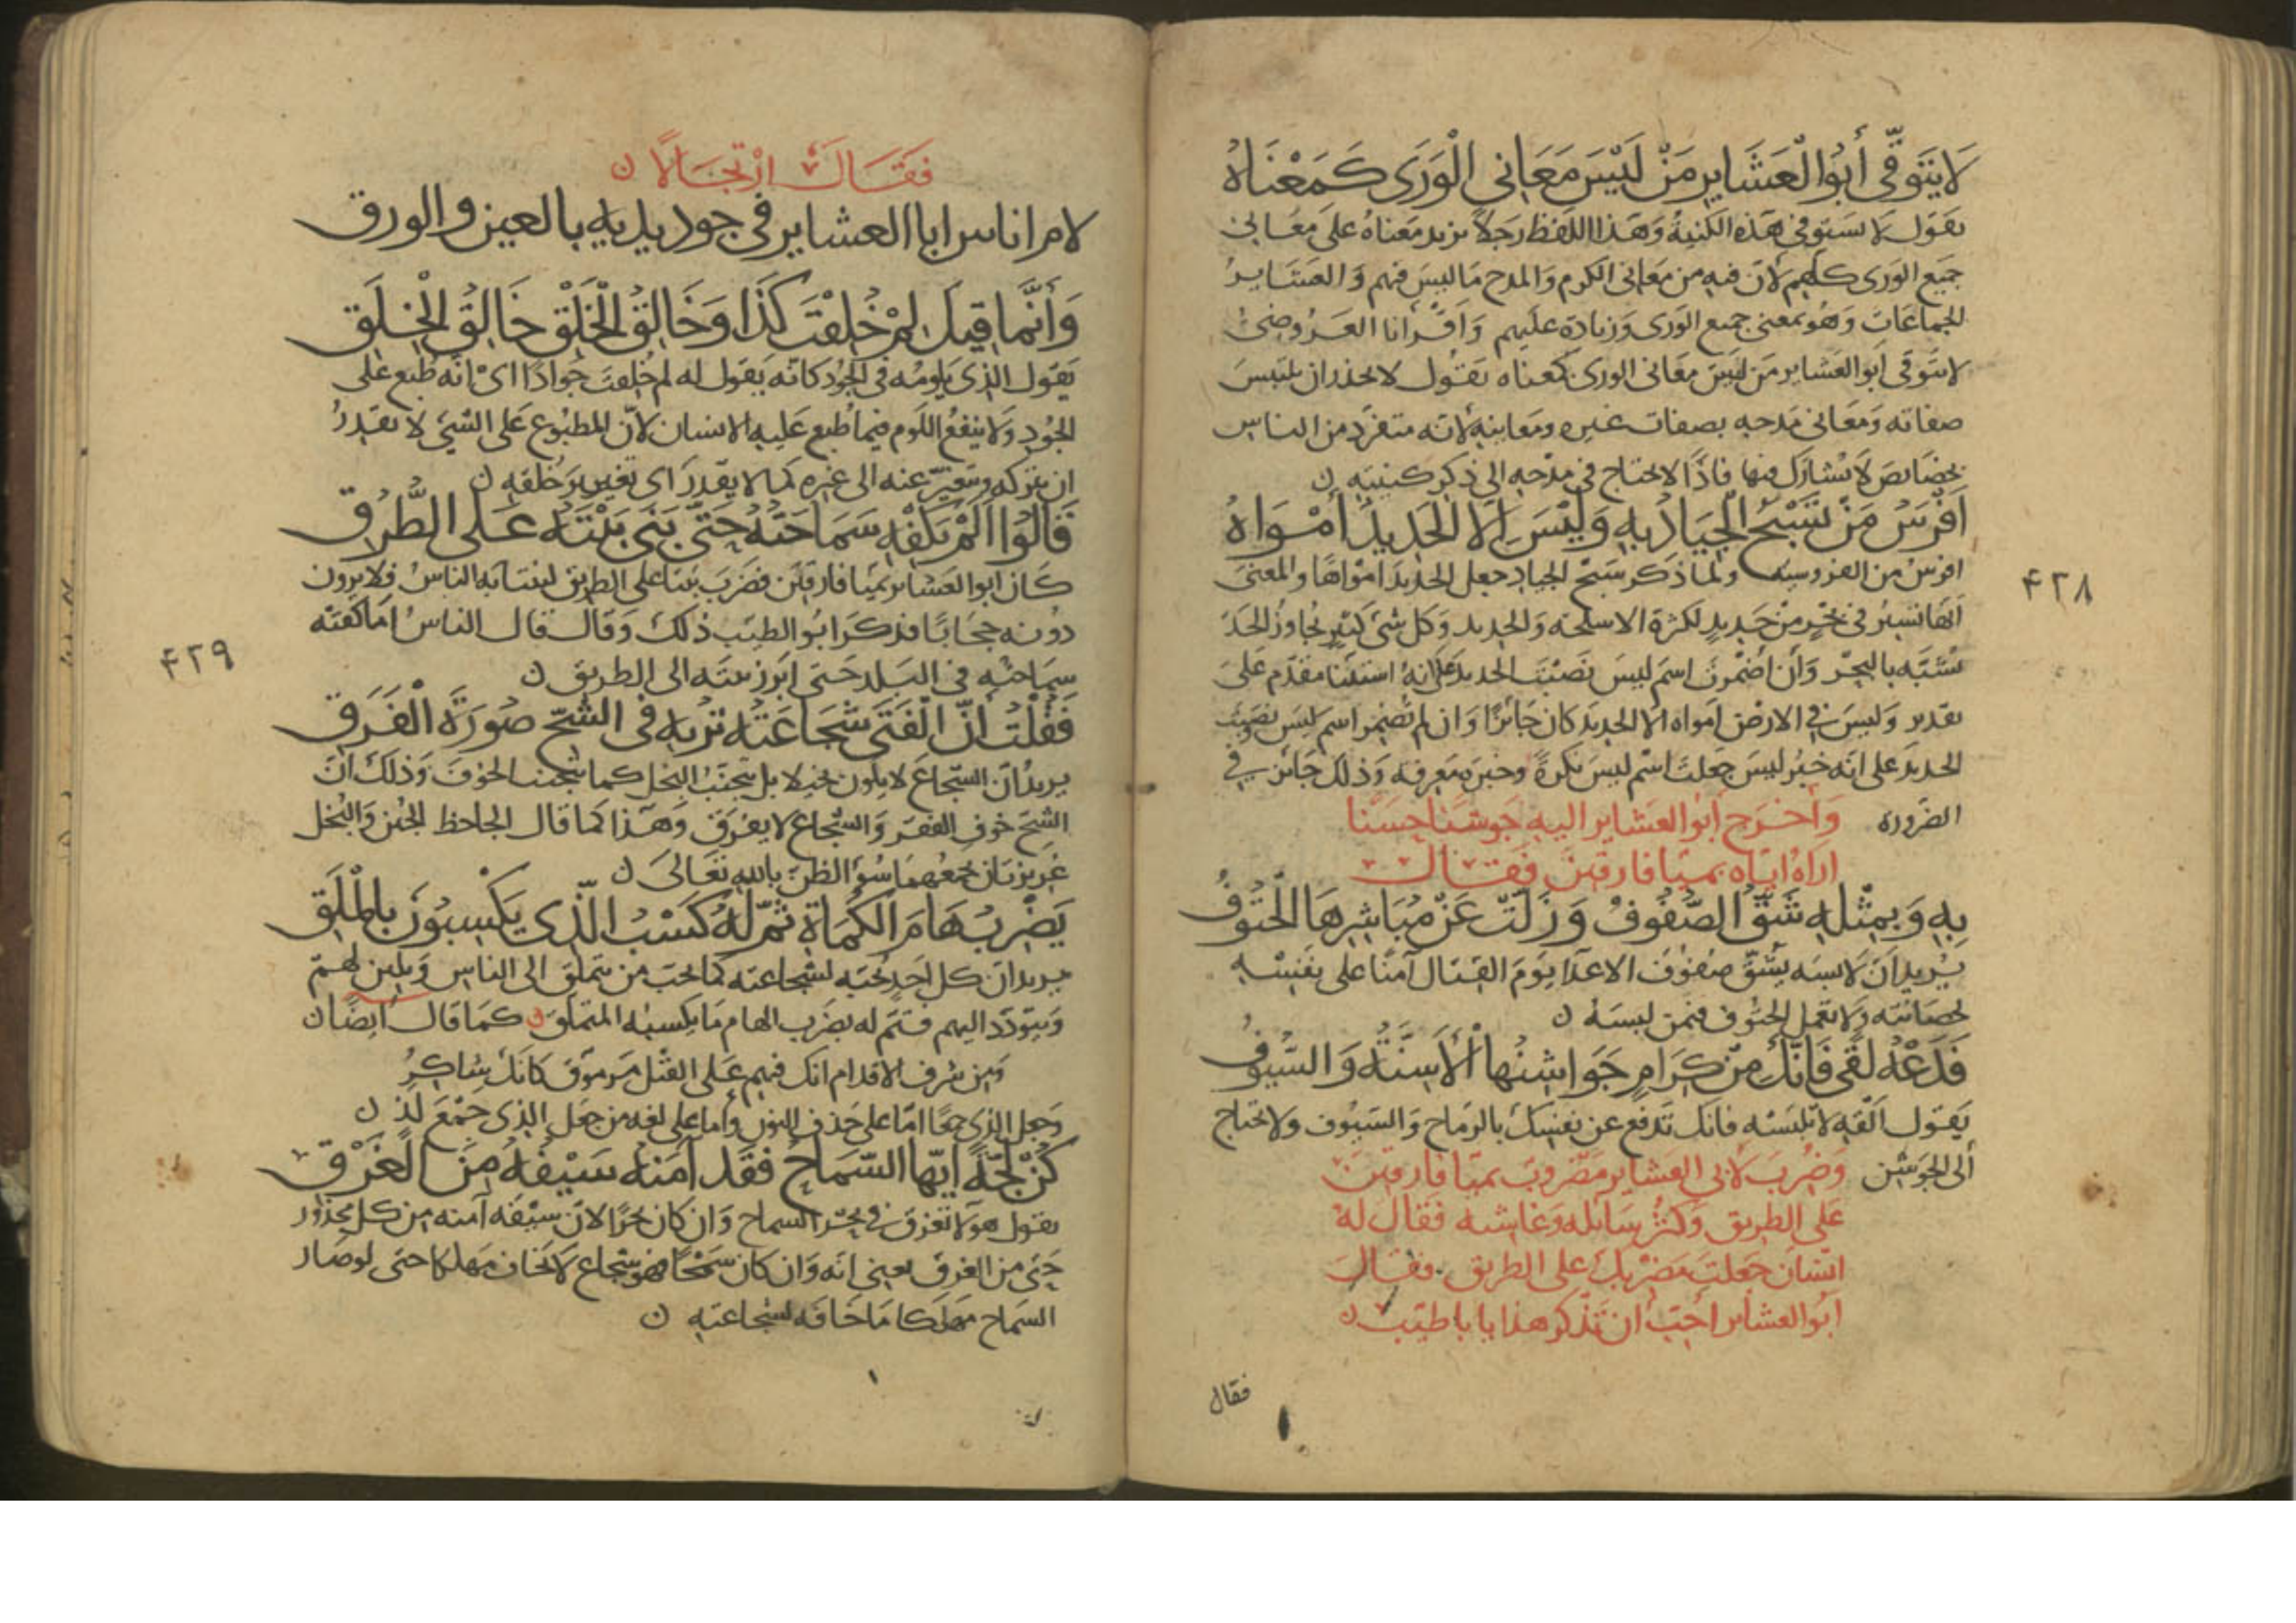 لَا يَتَوَقَّى أَبُو الْعَشَايِرِ مَنْ لَيْسَ مَعَانِي الْوَرَى كَمَعْنَاهُ
يقول لا يستوفي هذه الكنية وهذا اللفظ رجلا يزيد معناه على معاني
جميع الورى كلهم لان فيه من معاني الكرم والمدح ما ليس فيهم والعشاير
الجماعات وهو بمعنى جميع الورى وزيادة عليهم واقرانا العروضي
لا يتوقى ابو العشاير من ليس معاني الورى كمعناه يقول لا يحذر ان يلتبس
صفاته ومعاني مدحه بصفات غيره ومعانيه لانه متفرد من الناس
بخصايص لا يشارك فيها فاذا لا يحتاج في مدحه الى ذكر كنيته ن
أَفْرَسُ مَنْ تَسْبَحُ الْجِيَادُ بِهِ وَلَيْسَ إِلَّا الْحَدِيدَ أَمْوَاهُ
افرس من الفروسية ولما ذكر سبح الجياد جعل الحديد امواها والمعنى
انها تسير في بحر من حديد لكثرة الاسلحة والحديد وكل شي كثير يجاوز الحد
شبه بالبحر وان اضمرت اسم ليس نصبت الحديد على انه استثنا مقدم على
تقدير وليس في الارض امواه الا الحديد كان جائزا وان لم تضمر اسم ليس ونصبت
الحديد على انه خبر ليس جعلت اسم ليس نكرة وخبره معرفة وذلك جائز في
الضرورة وَأخرج أبو العشاير اليه جوشنا حسنا
اراه اياه بميافارقين فقال
بِهِ وَبِمِثْلِهِ شُقَّ الصُّفُوفُ وَزَلَّتْ عَنْ مُبَاشِرِهَا الْحُتُوفُ
يريد ان لابسه يشق صفوف الاعدا يوم القتال آمنا على نفسه
لحصانته ولا تعمل الحتوف فيمن لبسه ن
فَدَعْهُ لَقًى فَإِنَّكَ مِنْ كِرَامٍ جَوَاشِنُهَا الْأَسِنَّةُ وَالسُّيُوفُ
يقول القه لا تلبسه فانك تدفع عن نفسك بالرماح والسيوف ولا تحتاج
الى الجوشن وضرب لابي العشاير مضروب بميافارقين
على الطريق وكثر سائله وغاشيه فقال له
انسان جعلت مضربك على الطريق فقال
ابو العشاير احب ان تذكر هذا يا با طيب ن
فقال
٤٢٨
فَقَالَ ارْتِجَالًا ن
لام اناس ابا العشاير في جود يديه بالعين والورق
وَأَنَّمَا قِيلَ لِمْ خُلِقْتَ كَذَا وَخَالِقُ الْخَلْقِ خَالِقُ الْخُلُقِ
يقول الذي يلومه في الجود كانه يقول له لم خلقت جوادا اي انه طبع على
الجود ولا ينفع اللوم فيما طبع عليه الانسان لان المطبوع على الشي لا يقدر
ان يتركه ويتغير عنه الى غيره كما لا يقدر اى تغيير خلقه ن
قَالُوا أَلَمْ تَكْفِهِ سَمَاحَتُهُ حَتَّى بَنَى بَيْتَهُ عَلَى الطُّرُقِ
كان ابو العشاير بميافارقين فضرب بيتا على الطريق لينتابه الناس فلا يرون
دونه حجابا فذكر ابو الطيب ذلك وقال قال الناس اما كفته
سماحته في البلد حتى ابرز بيته الى الطريق ن
فَقُلْتُ أَنَّ الْفَتَى شَجَاعَتُهُ تُرِيهِ فِي الشُّحِّ صُورَةَ الْفَرَقِ
يريد ان الشجاع لا يكون بخيلا بل يتجنب البخل كما يتجنب الخوف وذلك ان
الشح خوف الفقر والشجاع لا يفرق وهذا كما قال الجاحظ الجبن والبخل
غريزتان يجمعهما سؤ الظن بالله تعالى ن
يَضْرِبُ هَامَ الْكُمَاةِ تَمَّ لَهُ كَسْبُ الَّذِي يَكْسِبُونَ بِالْمَلَقِ
يريد ان كل احد يحبه لشجاعته كما يحب من يتملق الى الناس ويلين لهم
ويتودد اليهم فتم له بضرب الهام ما يكسبه المتملق ن كما قال ايضا ن
ومن شرف الاقدام انك فيهم على القتل مرموق كانك شاكر
وجعل الذي جمعا اما على حذف النون واما على لغة من جعل الذي جمع لذ ن
كُنْ لُجَّةً أَيُّهَا السَّمَاحُ فَقَدْ آمَنَهُ سَيْفُهُ مِنَ الْغَرَقِ
يقول هو لا تغرق في بحر السماح وان كان بحرا لان سيفه آمنه من كل محذور
حتى من الغرق يعني انه وان كان سمحا فهو شجاع لا يخاف مهلكا حتى لو صار
السماح مهلكا ما خافه لشجاعته ن
٤٢٩